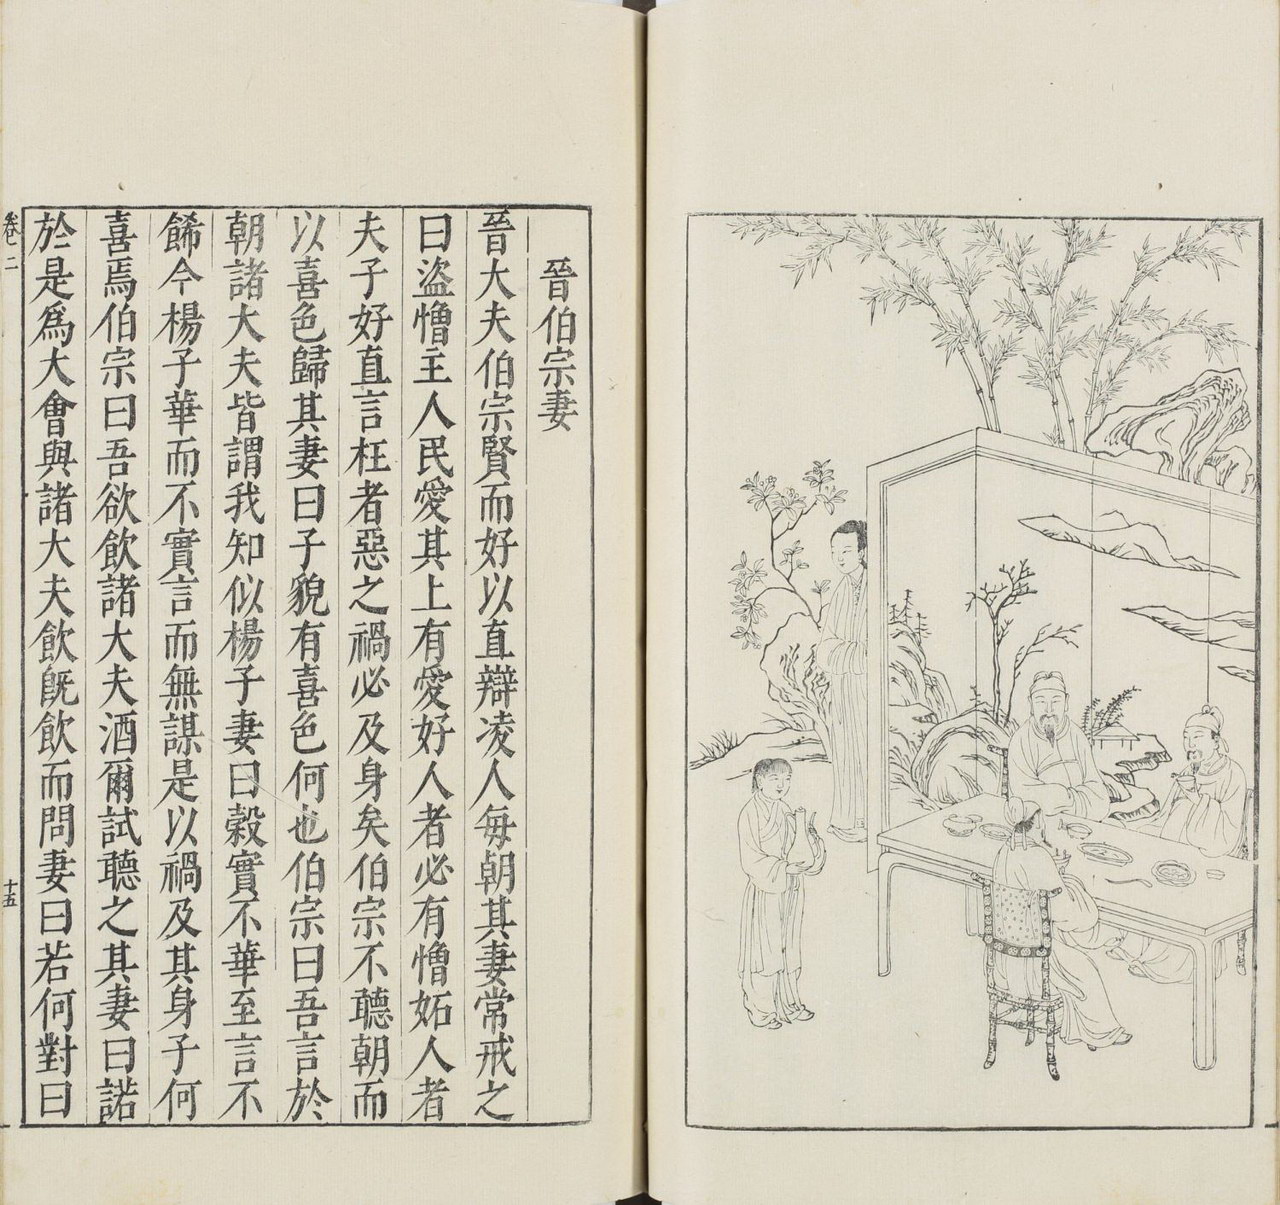 晉伯宗妻
晉大夫伯宗賢而好以直辯凌人每朝其妻常戒之
曰盜憎主人民愛其上有愛好人者必有憎妬人者
夫子好直言枉者惡之禍必及身矣伯宗不聽朝而
以喜色歸其妻曰子貌有喜色何也伯宗曰吾言於
朝諸大夫皆謂我知似楊子妻曰榖實不華至言不
餙今楊子華而不實言而無謀是以禍及其身子何
喜焉伯宗曰吾欲飲諸大夫酒爾試聽之其妻曰諾
於是爲大會與諸大夫飲旣飲而問妻曰若何對曰
卷二
十五